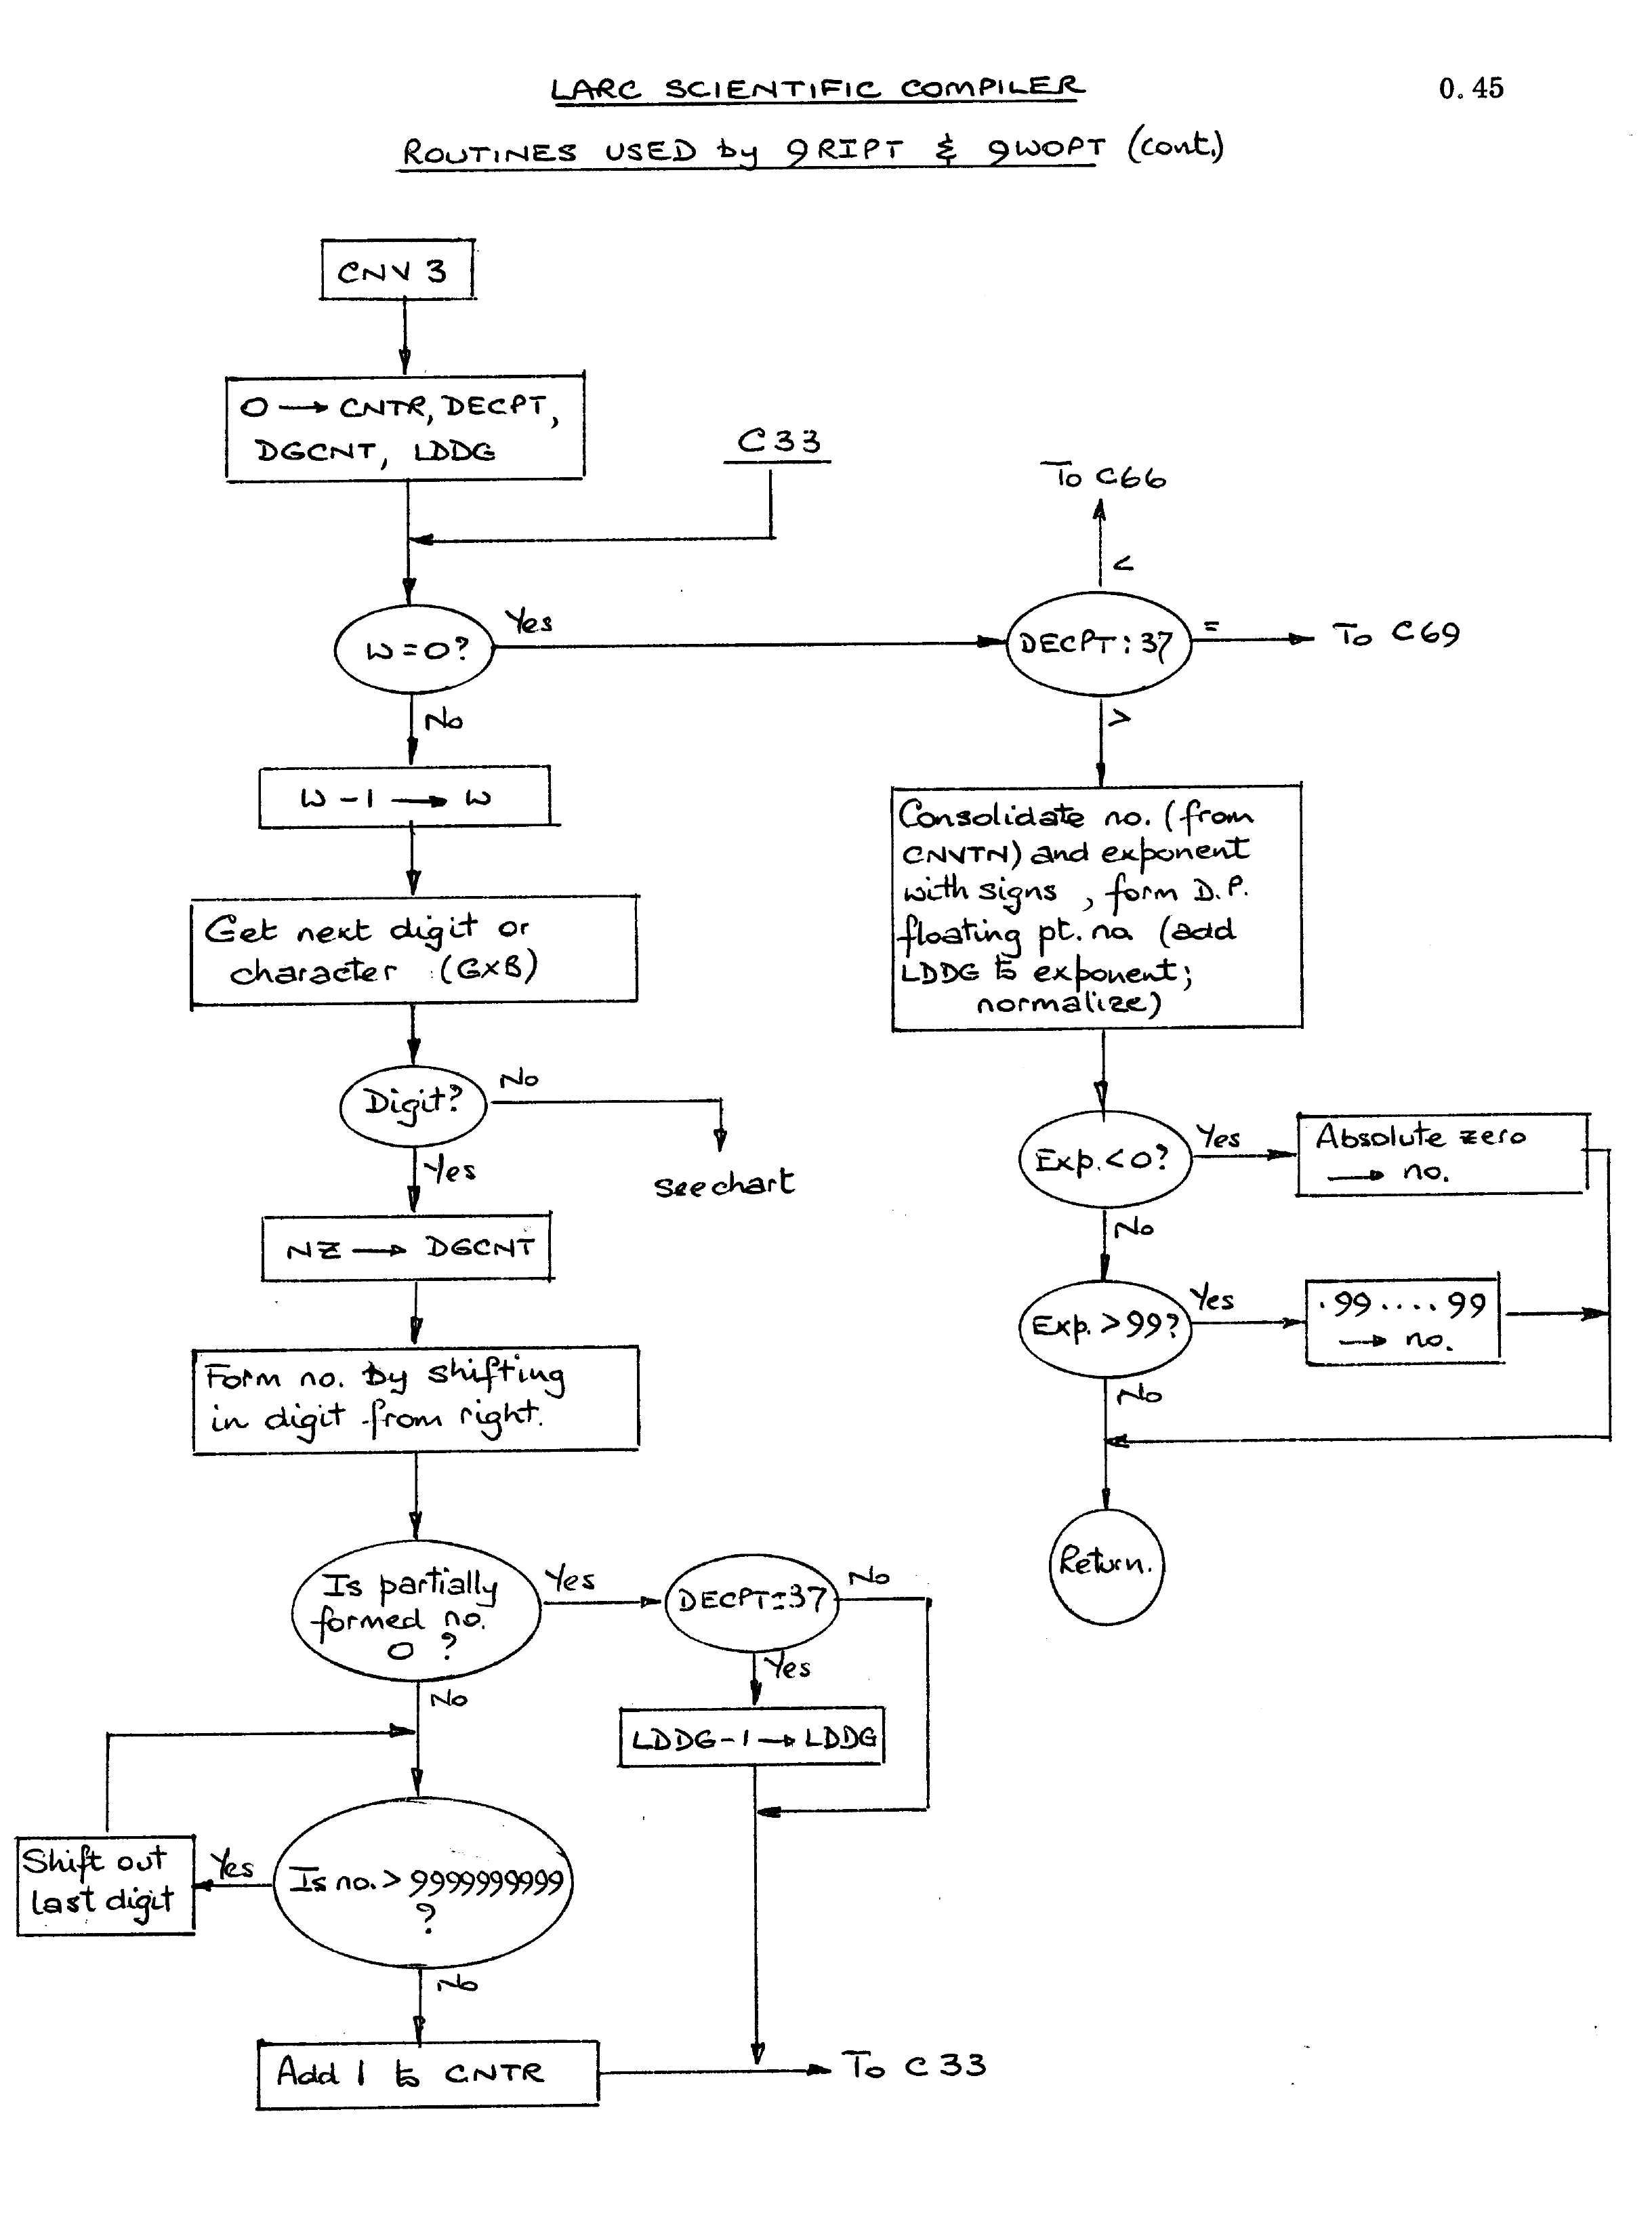 LARC SCIENTIFIC COMPILER
0.45
ROUTINES USED by 9RIPT & 9WOPT (cont.)
CNV 3
0 → CNTR, DECPT,
DGCNT, LDDG
C33
W=0?
Yes
No
W-1 → W
Get next digit or
character (GXB)
Digit?
No
see chart
Yes
NZ → DGCNT
Form no. by shifting
in digit from right.
Is partially
formed no.
0 ?
Yes
DECPT=37
No
Yes
LDDG-1 → LDDG
No
Is no. > 9999999999
?
Yes
Shift out
last digit
No
Add 1 to CNTR
To C33
To C66
<
DECPT : 37
=
To C69
>
Consolidate no. (from
CNVTN) and exponent
with signs, form D.P.
floating pt. no. (add
LDDG to exponent;
normalize)
Exp. < 0?
Yes
Absolute zero
→ no.
No
Exp. > 99?
Yes
.99....99
→ no.
No
Return.